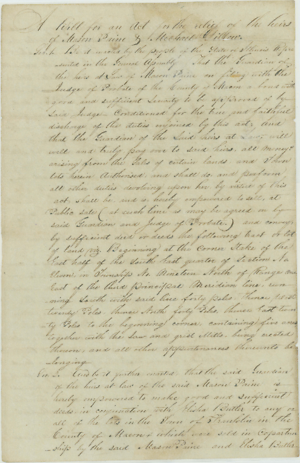 A bill for an act for the relief of the heirs
of Mason Paine & Michael
Sec 1 Be it enacted by the people of the State of Illinois repre
sented in the General Assembly That the Guardian of
the heirs of Mason Paine on filing with the
Judge of Probate of the County of Macon a bond with
good and sufficient Security to be approved of by
said Judge Conditioned for the true and faithful
discharge of the duties required by this act, and
that the Guardian of the said heirs at Law will
well and truly pay over to said heirs, all moneys
arising from the Sales of certain lands and
lots herein Authorised and shall do and perform
all other duties devolving upon her by virtue of this
act, shall be and is hereby empowered to sell at
Public sale (at such time as may be agreed on by
said Guardian and Judge of Probate) and convey
by sufficient deed or deeds the following tract
of land viz Beginning at the Corner Stake of the
East half of the South East quarter of Section No
in Township No Nineteen North of Range
East of the third Principal Meridian line, run
ning South with said line forty poles thence West
twenty Poles, thence North forty Poles, thence East twen
ty Poles to the beginning corner, containing five acres
together with the Saw and grist Mills erected
thereon and all other appurtenances thereunto be
longing
Sec 2 Be it further enacted that the said Guardian
of the heirs at law of the said Mason Paine is
hereby empowered to make good and sufficient
deeds in conjunction with Elisha Butler to any or
all of the lots in the Town of Franklin in the
County of Macon which was sold in copartner
ship by the said Mason Paine and Elisha Butler